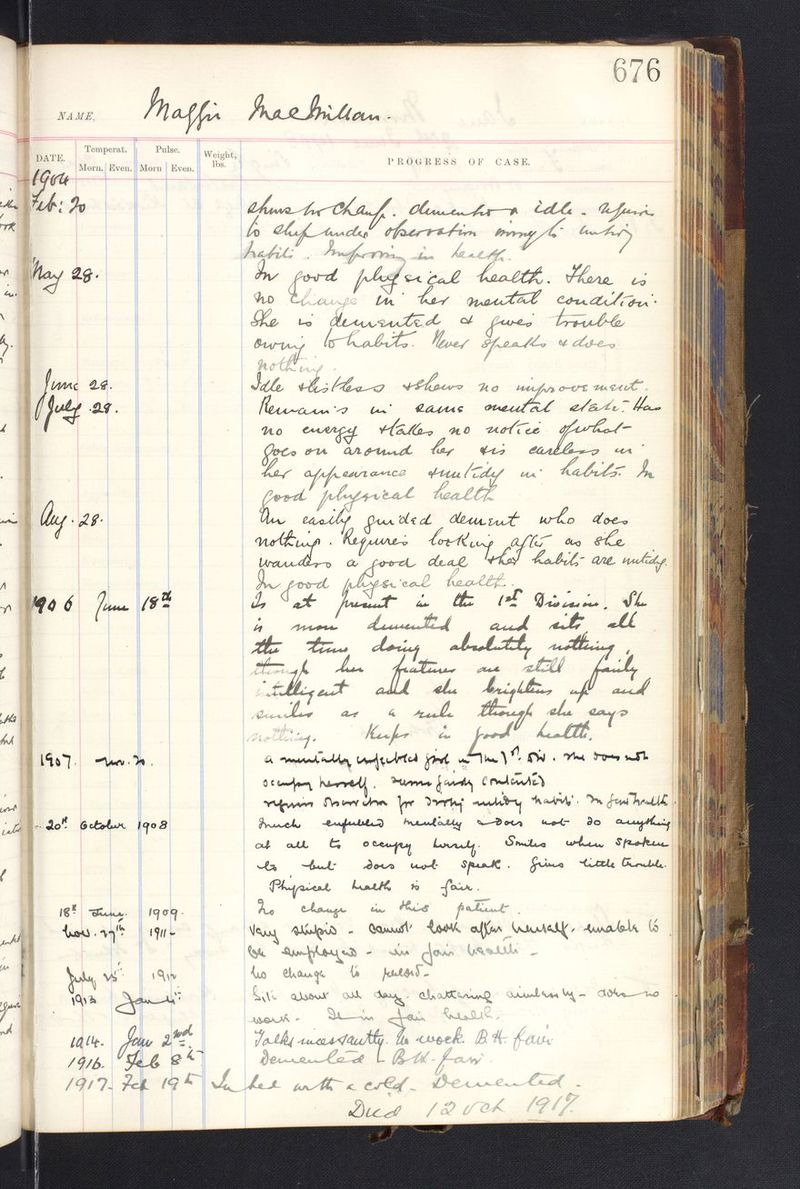 676
NAME, Maggie MacMillan.
DATE. Temperat. Morn. Even. Pulse. Morn Even. Weight, lbs. PROGRESS OF CASE.
1904
Feb: 20 shews no change. demented & idle. requires
to sleep under observation owing to untidy
habits. Improving in health.
May 28. In good physical health. There is
no change in her mental condition.
She is demented & gives trouble
owing to habits. Never speaks & does
nothing.
June 28. Idle & listless & shews no improvement.
July 28. Remains in same mental state. Has
no energy & takes no notice of what
goes on around her & is careless in
her appearance & untidy in habits. In
good physical health
Aug. 28. An easily guided dement who does
nothing. Requires looking after as she
wanders a good deal & her habits are untidy.
In good physical health.
1906 June 18th Is at present in the 1st Division. She
is more demented and sits all
the time doing absolutely nothing,
though her features are still fairly
intelligent and she brightens up and
smiles as a rule though she says
nothing. Keeps in good health.
1907. Nov. 20. a mentally enfeebled girl in the 1st Div. She does not
occupy herself. seems fairly contented
requires observation for untidy habits. In fair health.
20th October 1908 Much enfeebled mentally & does not do anything
at all to occupy herself. Smiles when spoken
to but does not speak. Gives little trouble.
Physical health is fair.
18th June. 1909. No change in this patient.
Nov. 27th 1911 - Very stupid - cannot look after herself. unable to
be employed - in fair health -
July 25th 1912 No change to record -
1913 Jan Sits about all day. chattering aimlessly - does no
work. Is in fair health.
1914. Jan 2nd. Talks incessantly. No work. B.H. fair
1916. Feb 8th Demented - B.H. fair.
1917. Feb 19th In bed with a cold. Demented.
Died 12 Oct 1917.